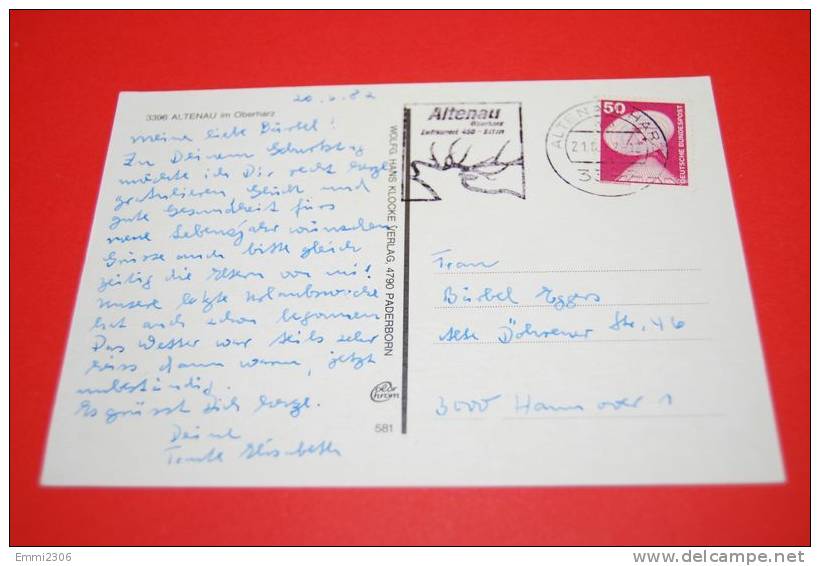 20.6.82
3396 ALTENAU im Oberharz
Meine liebe Bärbel!
Zu Deinem Geburtstag
möchte ich Dir recht herzl.
gratulieren Glück und
gute Gesundheit fürs
neue Lebensjahr wünschen
Grüsse auch bitte gleich
zeitig die Eltern von mir!
Unsere letzte Urlaubswoche
hat auch schon begonnen
Das Wetter war teils sehr
heiss dann warm, jetzt
unbeständig.
Es grüsst Dich herzl.
Deine
Tante Elisabeth
WOLFG. HANS KLOCKE VERLAG, 4790 PADERBORN
581
Altenau
Oberharz
ALTENAU, HARZ
21.6
50
DEUTSCHE BUNDESPOST
Frau
Bärbel Eggers
Alte Döhrener Str. 46
3000 Hannover 1
Emmi2306
delcampe.net